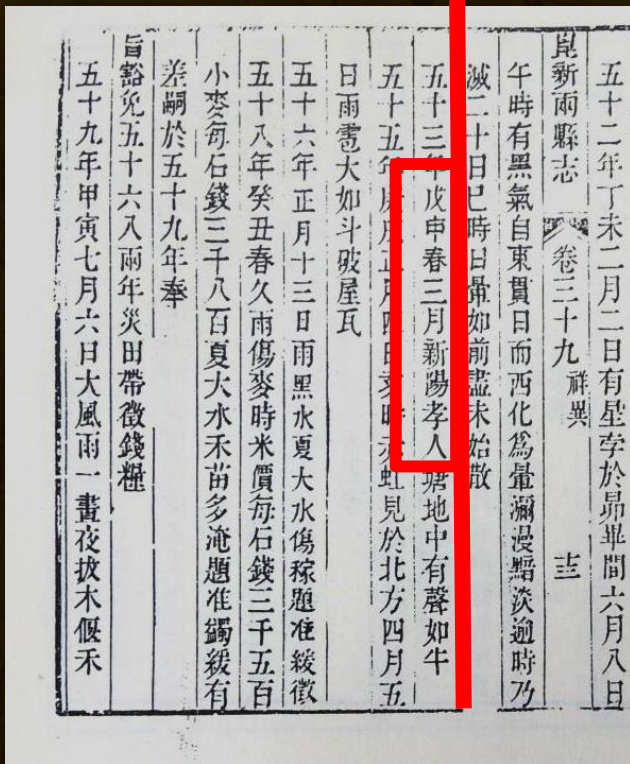 五十二年丁未二月二日有星孛於昴畢間六月八日
崑新兩縣志 卷三十九 祥異
午時有黑氣自東貫日而西化爲暈瀰漫黯淡逾時乃
滅二十日巳時日暈如前盡未始散
五十三年戊申春三月新陽孝人塘地中有聲如牛
五十五年庚戌正月四日亥時赤虹見於北方四月五
日雨雹大如斗破屋瓦
五十六年正月十三日雨黑水夏大水傷稼題准緩徵
五十八年癸丑春久雨傷麥時米價每石錢三千五百
小麥每石錢三千八百夏大水禾苗多淹題准蠲緩有
差嗣於五十九年奉
旨豁免五十六八兩年災田帶徵錢糧
五十九年甲寅七月六日大風雨一晝夜拔木偃禾